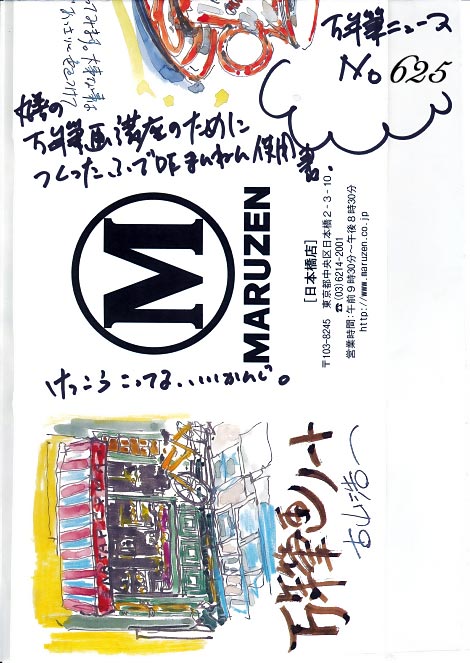 万年筆ニュース
No 625
万年筆画講座のために
つくったふでDEまんねん使用書。
M
MARUZEN
[日本橋店]
〒103-8245 東京都中央区日本橋2-3-10
☎(03)6214-2001
営業時間:午前9時30分〜午後8時30分
http://www.maruzen.co.jp
けっこうこってる、、いいかんじ。
万年筆画ノート
古山浩一